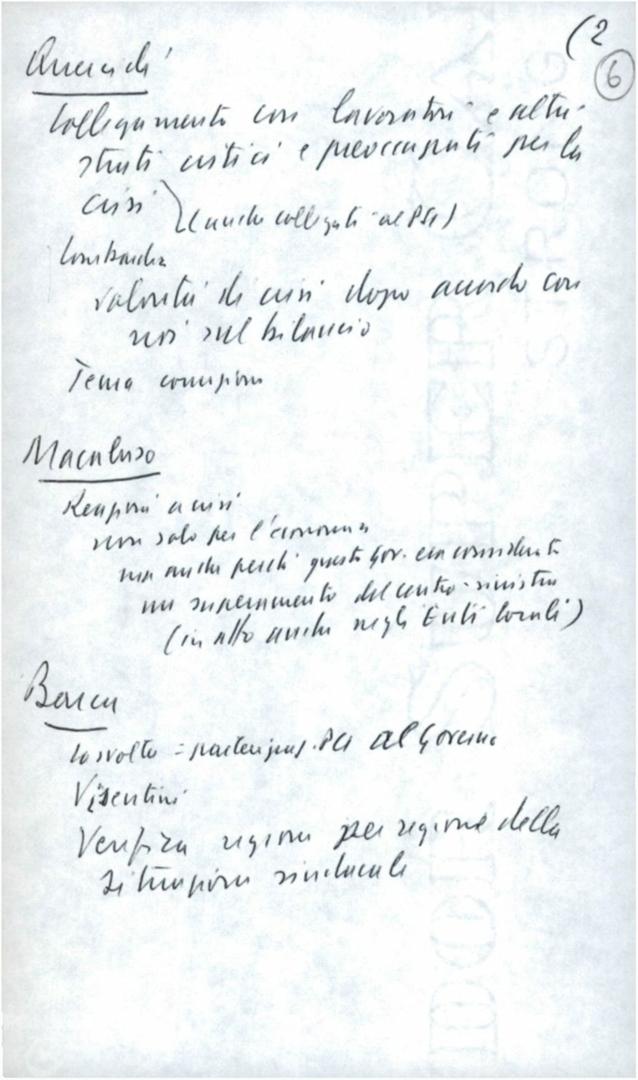 (2
6
Quercioli
Collegamento con lavoratori e altri
strati critici e preoccupati per la
crisi
(anche collegati al PSI)
Lombardia
volontà di crisi dopo accordo con
noi sul bilancio
Tema
Macaluso
Reazioni a crisi
non solo per l'economia
ma anche perché questo gov. era considerato
un superamento del centro-sinistra
(in atto anche negli Enti locali)
Barca
La svolta = partecipaz. PCI al Governo
Visentini
Verifica regione per regione della
situazione sindacale